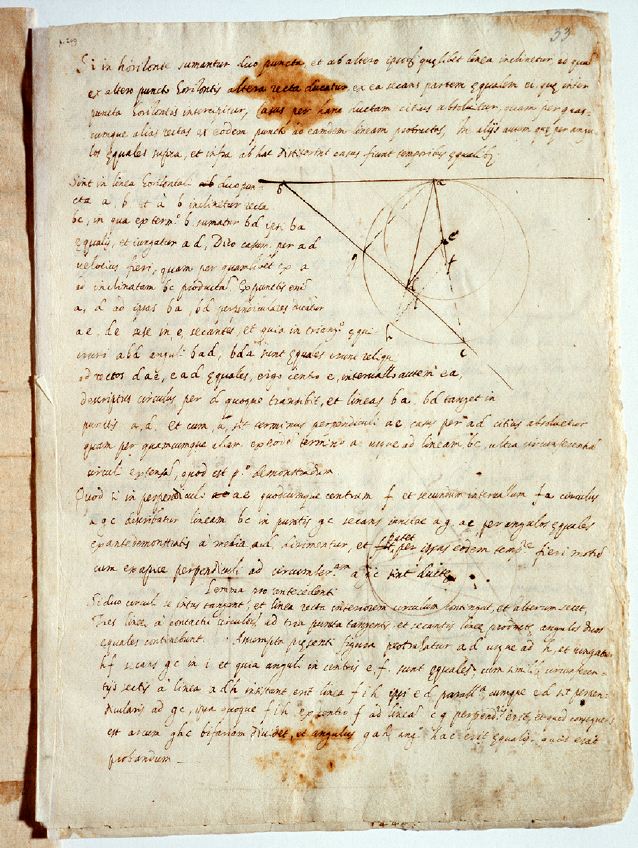 33
Si in horizonte sumantur duo puncta, et ab altero ipsorum quęlibet linea inclinetur, ad quam
ex altero puncto horizontis altera recta ducatur, ex ea secans partem ęqualem ei, quę inter
puncta horizontis intercipitur, casus per hanc ductam citius absolvitur, quam per quas-
cumque alias rectas ex eodem puncto ad eandem lineam protractas. In alijs autem quę per angu-
los ęquales supra, et infra ab hac distiterint casus fiunt temporibus ęqualibus
Sint in linea horizontali duo pun-
cta a, b et a b inclinetur recta
bc, in qua ex termino b sumatur bd ipsi ba
ęqualis, et iungatur ad, Dico casum per ad
velocius fieri, quam per quamlibet ex a
ad inclinatam bc productam. Ex punctis enim
a, d ad ipsas ba, bd perpendiculares ducatur
ae, de sese in e secantes, et quia in triangulo ęqui
cruri abd anguli bad, bda sunt ęquales erunt reliqui
ad rectos dae, eda ęquales, ergo centro e, intervallo autem ea,
descriptus circulus per d quoque transibit, et lineas ba bd tanget in
punctis a, d. et cum a sit terminus perpendiculi ae casus per ad citius absolvetur
quam per quamcumque aliam ex eodem termino a usque ad lineam bc, ultra circumferentiam
circuli extensam, quod est primo demonstrandum.
Quod si in perpendiculo ae quodcumque centrum f et secundum intervallum fa circulus
agc describatur lineam bc in punctis gc secans iunctae ag, ac per angulos ęquales
ex antedemonstratis a media ad dirimentur, et per ipsas eodem tempore fieri motus
cum ex apice perpendiculi ad circumferentiam agc sint ductę
Lemma pro antecedenti
Si duo circuli se intus tangant, et linea recta interiorem circulum contingat, et alterum secet,
Tres lineę a contactu circulorum ad tria puncta tangentis et secantis lineę productę angulos duos
ęquales continebunt. Assumpta pręsenti figura protrahatur ad usque ad h, et iungatur
hf secans gc in i et quia anguli in centris e f. sunt ęquales, cum similibus circumferen-
tijs sectis a linea adh insistant erit linea fih ipsi ed parallela cumque ed sit perpen-
dicularis ad gc, ipsa quoque fih ex centro f ad lineam cg perpendicularis erit, et quod consequens
est arcum ghc bifariam dividet, et angulus gah angulo hac erit ęqualis, quod erat
probandum
b
a
e
f
g
d
h
i
c